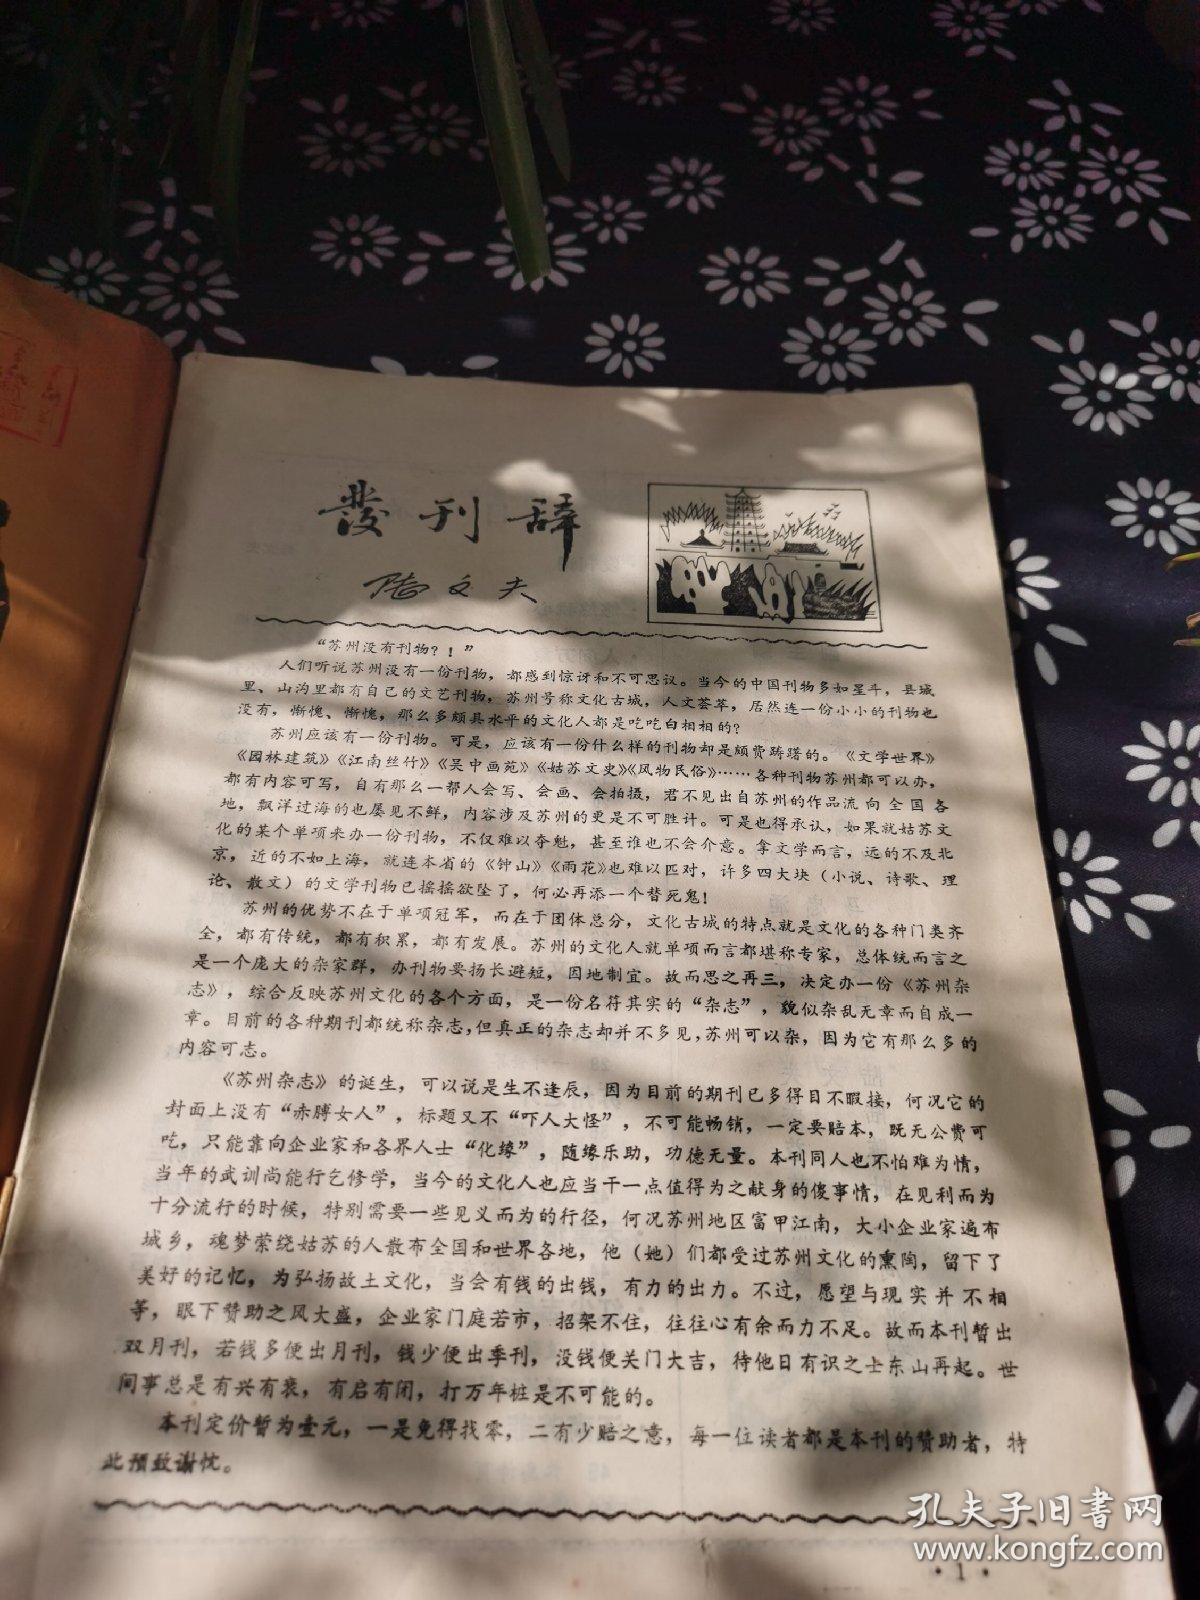 发刊辞
陆文夫
“苏州没有刊物？！”
人们听说苏州没有一份刊物，都感到惊讶和不可思议。当今的中国刊物多如星斗，县城
里、山沟里都有自己的文艺刊物，苏州号称文化古城，人文荟萃，居然连一份小小的刊物也
没有，惭愧、惭愧，那么多颇具水平的文化人都是吃吃白相相的？
苏州应该有一份刊物。可是，应该有一份什么样的刊物却是颇费踌躇的。《文学世界》
《园林建筑》《江南丝竹》《吴中画苑》《姑苏文史》《风物民俗》……各种刊物苏州都可以办，
都有内容可写，自有那么一帮人会写、会画、会拍摄，君不见出自苏州的作品流向全国各
地，飘洋过海的也屡见不鲜，内容涉及苏州的更是不可胜计。可是也得承认，如果就姑苏文
化的某个单项来办一份刊物，不仅难以夺魁，甚至谁也不会介意。拿文学而言，远的不及北
京，近的不如上海，就连本省的《钟山》《雨花》也难以匹对，许多四大块（小说、诗歌、理
论、散文）的文学刊物已摇摇欲坠了，何必再添一个替死鬼！
苏州的优势不在于单项冠军，而在于团体总分，文化古城的特点就是文化的各种门类齐
全，都有传统，都有积累，都有发展。苏州的文化人就单项而言都堪称专家，总体统而言之
是一个庞大的杂家群，办刊物要扬长避短，因地制宜。故而思之再三，决定办一份《苏州杂
志》，综合反映苏州文化的各个方面，是一份名符其实的“杂志”，貌似杂乱无章而自成一
章。目前的各种期刊都统称杂志，但真正的杂志却并不多见，苏州可以杂，因为它有那么多的
内容可志。
《苏州杂志》的诞生，可以说是生不逢辰，因为目前的期刊已多得目不暇接，何况它的
封面上没有“赤膊女人”，标题又不“吓人大怪”，不可能畅销，一定要赔本，既无公费可
吃，只能靠向企业家和各界人士“化缘”，随缘乐助，功德无量。本刊同人也不怕难为情，
当年的武训尚能行乞修学，当今的文化人也应当干一点值得为之献身的傻事情，在见利而为
十分流行的时候，特别需要一些见义而为的行径，何况苏州地区富甲江南，大小企业家遍布
城乡，魂梦萦绕姑苏的人散布全国和世界各地，他（她）们都受过苏州文化的熏陶，留下了
美好的记忆，为弘扬故土文化，当会有钱的出钱，有力的出力。不过，愿望与现实并不相
等，眼下赞助之风大盛，企业家门庭若市，招架不住，往往心有余而力不足。故而本刊暂出
双月刊，若钱多便出月刊，钱少便出季刊，没钱便关门大吉，待他日有识之士东山再起。世
间事总是有兴有衰，有启有闭，打万年桩是不可能的。
本刊定价暂为壹元，一是免得找零，二有少赔之意，每一位读者都是本刊的赞助者，特
此预致谢忱。
·1·
孔夫子旧书网
www.kongfz.com